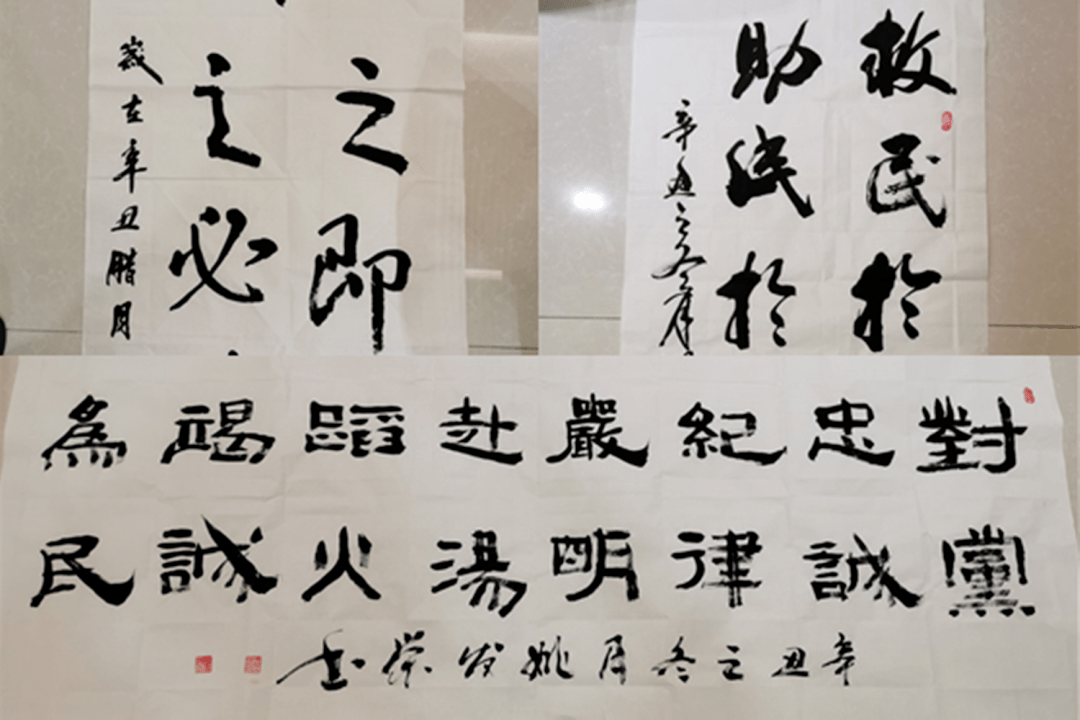 之即
之必
歲在辛丑腊月
救民於
助民於
辛丑之冬月
對黨
忠誠
紀律
嚴明
赴湯
蹈火
竭誠
為民
辛丑之冬月姚发荣书